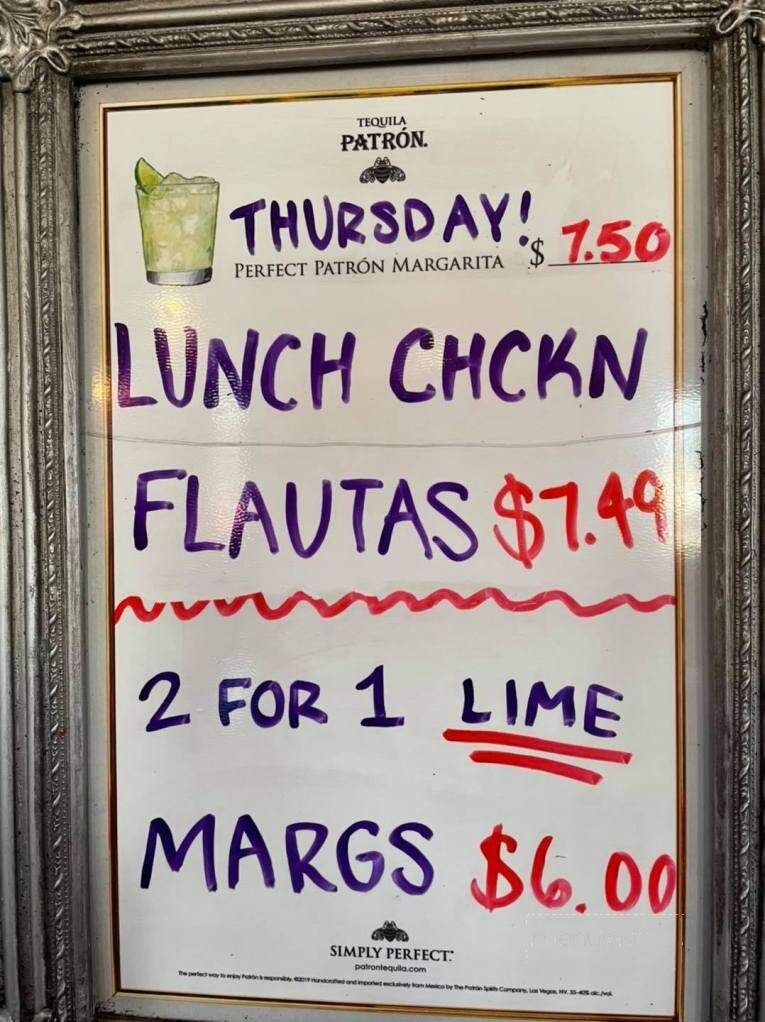 TEQUILA
PATRÓN.
THURSDAY!
PERFECT PATRÓN MARGARITA $ 7.50
LUNCH CHCKN
FLAUTAS $7.49
2 FOR 1 LIME
MARGS $6.00
SIMPLY PERFECT.
patrontequila.com
The perfect way to enjoy Patrón is responsibly. ©2019 Handcrafted and imported exclusively from Mexico by The Patrón Spirits Company, Las Vegas, NV. 35-40% alc./vol.